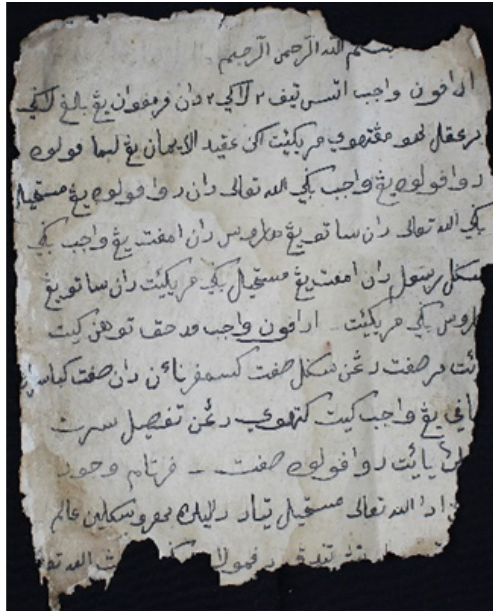 بسم الله الرحمن الرحيم
ادافون واجب اتس تيف٢ لاكي٢ دان فرمفوان يڠ بالغ لاكي
برعقل تاهو مڠتهوي مريكئيت اكن عقيد الايمان يڠ ليما فولوه
دوا فولوه يڠ واجب بكي الله تعالى دان دوا فولوه يڠ مستحيل
بكي الله تعالى دان ساتو يڠ هاروس دان امفت يڠ واجب بكي
سكل رسول دان امفت يڠ مستحيل بكي مريكئيت دان ساتو يڠ
هاروس بكي مريكئيت ادافون واجب فد حق توهن كيت
ائت برصفت دڠن سكل صفت كسمفرنائن دان صفت
يڠ واجب كيت كتهوي دڠن تفصيل سرت
يائيت دوا فولوه صفت فرتام وجود
ادا الله تعالى مستحيل تياد دليلڽ بهرو سكلين عالم